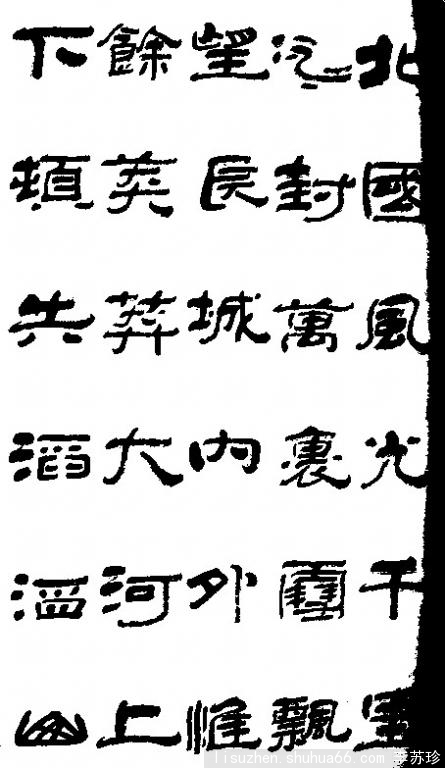 北國風光千里
冰封萬裏雪飄
望長城內外惟
餘莽莽大河上
下頓失滔滔山
lisuzhen.shuhua66.com 李苏珍